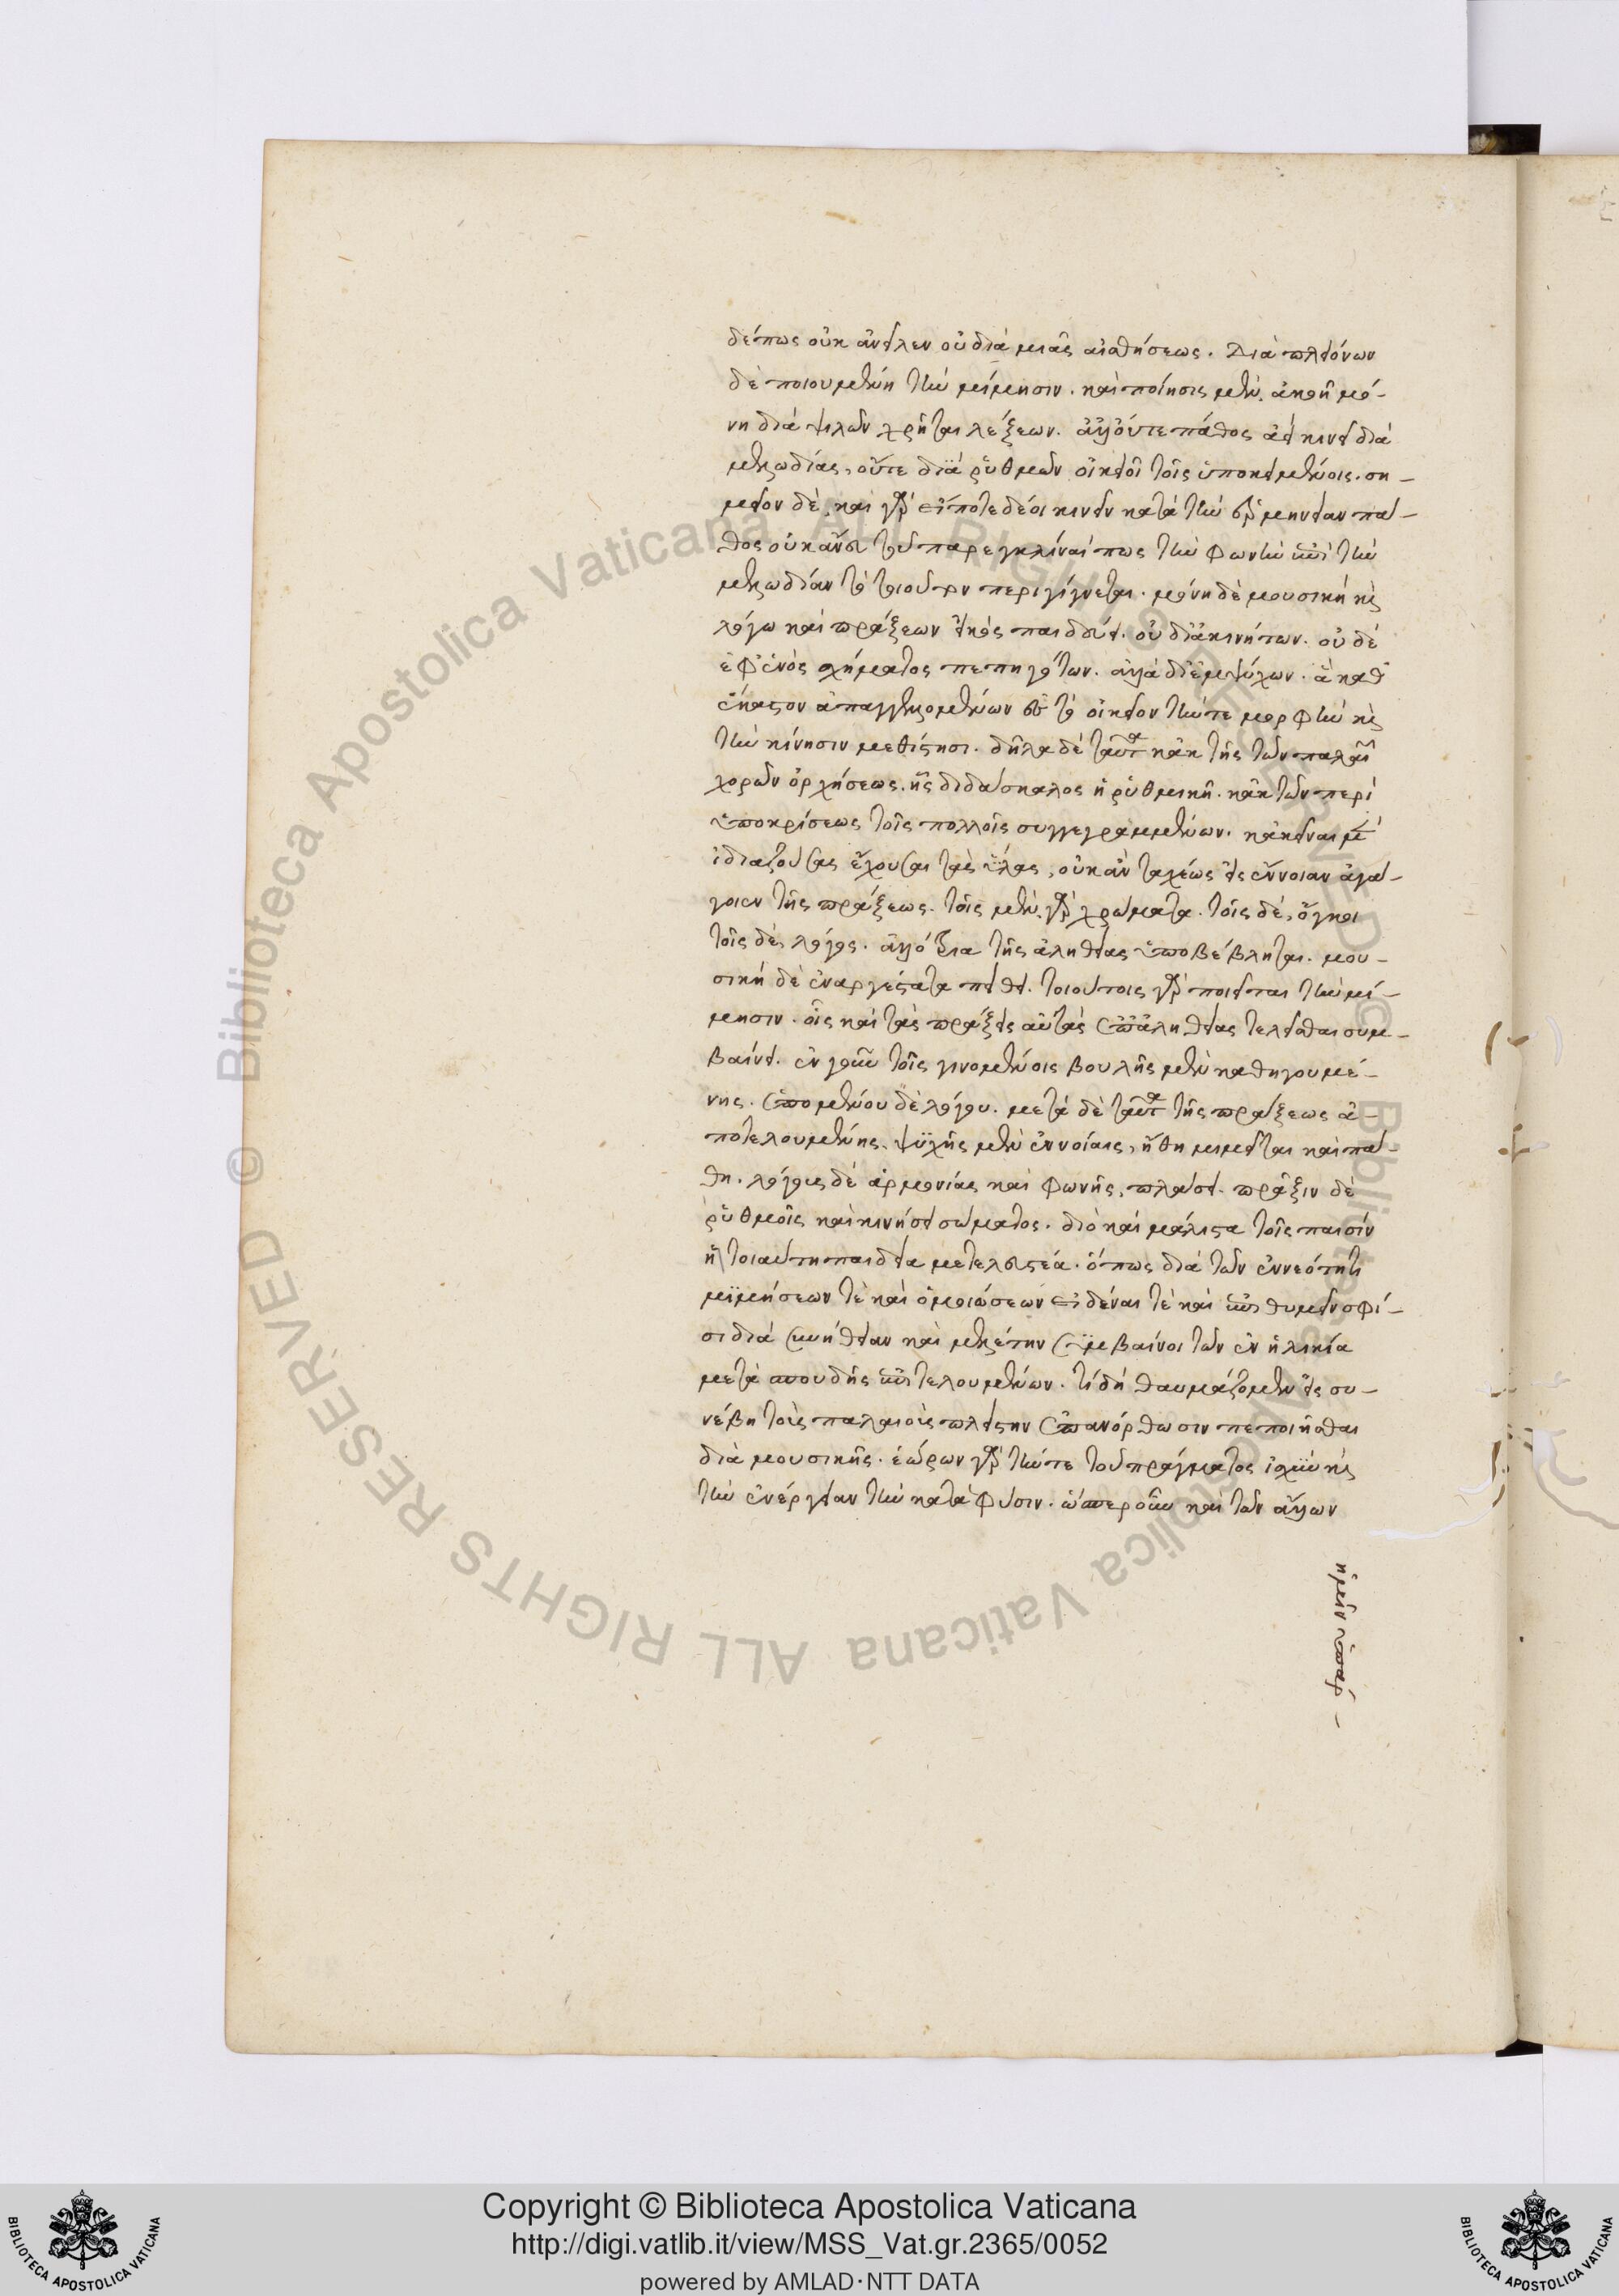 δέπως οὐκ ἀντλεν οὐ διὰ μιᾶς αἰσθήσεως. Διὰ πλειόνων
δὲ ποιουμένη τὴν μίμησιν. καὶ ποίησις μὲν ἀκοῇ μό-
νη διὰ ψιλῶν χρῆται λέξεων. ἀλλ' οὔτε πάθος ἀεὶ κινεῖ διὰ
μελωδίας, οὔτε διὰ ῥυθμῶν οἰκειοῖ τοῖς ὑποκειμένοις. ση-
μεῖον δὲ, καὶ γὰρ εἴποτε δέοι κινεῖν κατὰ τὴν ἑρμηνείαν πά-
θος οὐκ ἄνευ τοῦ παρεγκλῖναί πως τὴν φωνὴν ἐπὶ τὴν
μελωδίαν τὸ τοιοῦτον περιγίγνεται. μόνη δὲ μουσικὴ καὶ
λόγω καὶ πράξεων εἰκόσι παιδεύει. οὐ δι' ἀκινήτων. οὐδὲ
ἐφ' ἑνὸς σχήματος πεπηγότων. ἀλλὰ δι' ἐμψύχων. ἃ καθ'
ἕκαστον ἀπαγγελλομένων εἰς τὸ οἰκεῖον τήν τε μορφὴν καὶ
τὴν κίνησιν μεθίστησι. δῆλα δὲ ταῦτα κἀκ τῆς τῶν παλαιῶν
χορῶν ὀρχήσεως. ἧς διδάσκαλος ἡ ῥυθμική. κἀκ τῶν περὶ
ὑποκρίσεως τοῖς πολλοῖς συγγεγραμμένων. κἀκεῖναι μὲν
ἰδιαζούσας ἔχουσαι τὰς ὕλας, οὐκ ἂν ταχέως εἰς ἔννοιαν ἀγά-
γοιεν τῆς πράξεως. τοῖς μὲν γὰρ χρώματα. τοῖς δὲ, ὄγκοι
τοῖς δὲ, λόγος. ἀλλότρια τῆς ἀληθείας ὑποβέβληται. μου-
σικὴ δὲ ἐναργέστατα πείθει. τοιούτοις γὰρ ποιεῖται τὴν μί-
μησιν. οἷς καὶ τὰς πράξεις αὐτὰς ἐπ' ἀληθείας τελεῖσθαι συμ-
βαίνει. ἐν γοῦν τοῖς γινομένοις βουλῆς μὲν καθηγουμέ-
νης. ἑπομένου δὲ λόγου. μετὰ δὲ ταῦτα τῆς πράξεως ἀ-
ποτελουμένης. ψυχῆς μὲν ἐννοίαις, ἤθη μιμεῖται καὶ πά-
θη. λόγους δὲ ἁρμονίας καὶ φωνῆς, πλάσει. πρᾶξιν δὲ
ῥυθμοῖς καὶ κινήσει σώματος. διὸ καὶ μάλιστα τοῖς παισὶν
ἡ τοιαύτη παιδεία μετελευστέα. ὅπως διὰ τῶν ἐν νεότητι
μιμήσεών τε καὶ ὁμοιώσεων εἰδέναι τε καὶ ἐπιθυμεῖν σφί-
σι διὰ συνήθειαν καὶ μελέτην συμβαίνοι τῶν ἐν ἡλικία
μετὰ σπουδῆς ἐπιτελουμένων. τί δὴ θαυμάζομεν εἰ συ-
νέβη τοῖς παλαιοῖς πλείστην ἐπανόρθωσιν πεποιῆσθαι
διὰ μουσικῆς. ἑώρων γὰρ τήν τε τοῦ πράγματος ἰσχὺν καὶ
τὴν ἐνέργειαν τὴν κατὰ φύσιν. ὥσπερ οὖν καὶ τῶν ἄλλων
ἡμῖν ὑπαρ-
Copyright © Biblioteca Apostolica Vaticana
http://digi.vatlib.it/view/MSS_Vat.gr.2365/0052
powered by AMLAD·NTT DATA